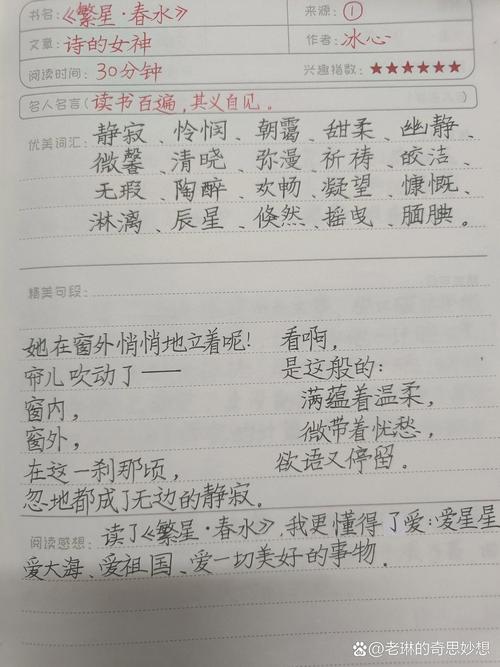 书名：《繁星·春水》 来源：①
文章：诗的女神 作者：冰心
阅读时间：30分钟 兴趣指数：★★★★★★
名人名言（读书百遍，其义自见。
优美词汇：静寂、怜悯、朝霭、甜柔、幽静、
微馨、清晓、弥漫、祈祷、皎洁、
无瑕、陶醉、欢畅、凝望、慷慨、
淋漓、辰星、倏然、摇曳、腼腆。
精美句段：
她在窗外悄悄地立着呢！ 看啊，
帘儿吹动了—— 是这般的：
窗内， 满蕴着温柔，
窗外， 微带着忧愁，
在这一刹那顷， 欲语又停留。
忽地都成了无边的静寂。
阅读感想：读了《繁星·春水》，我更懂得了爱：爱星星
爱大海、爱祖国、爱一切美好的事物．
老琳的奇思妙想